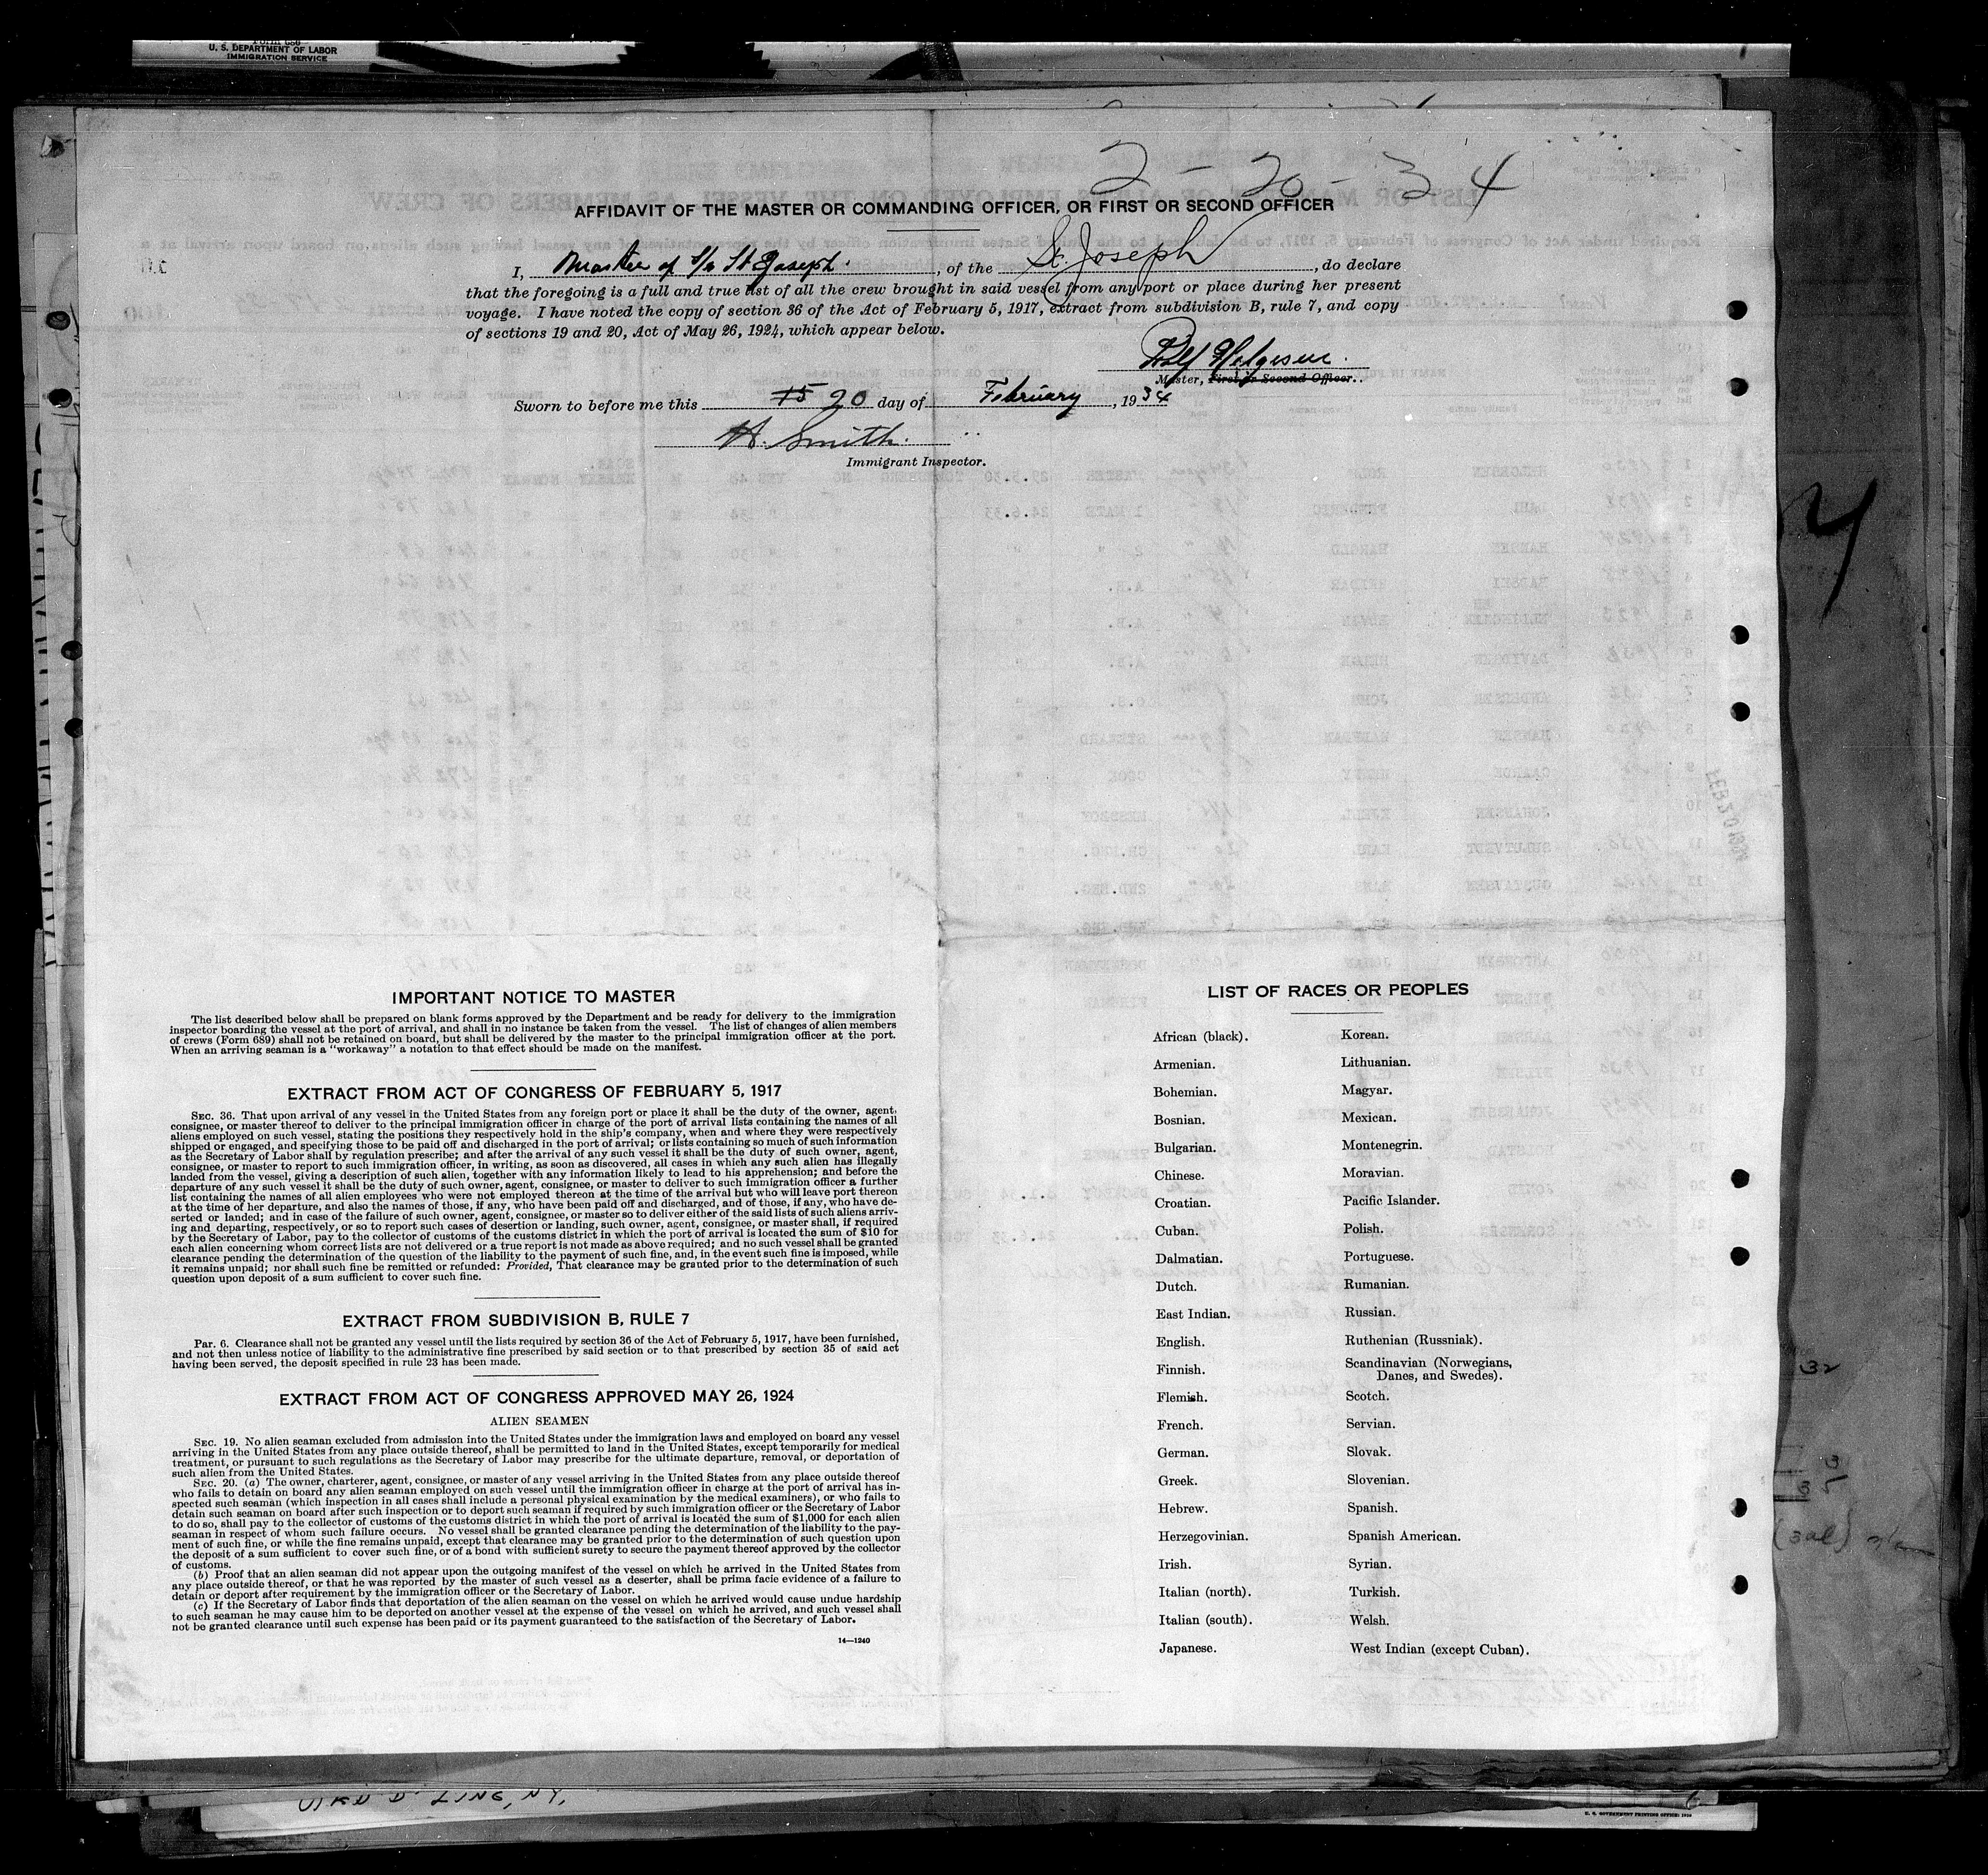 U. S. DEPARTMENT OF LABOR
IMMIGRATION SERVICE
2 - 20 - 34
AFFIDAVIT OF THE MASTER OR COMMANDING OFFICER, OR FIRST OR SECOND OFFICER
I, Master of S/s St Joseph, of the St. Joseph, do declare
that the foregoing is a full and true list of all the crew brought in said vessel from any port or place during her present
voyage. I have noted the copy of section 36 of the Act of February 5, 1917, extract from subdivision B, rule 7, and copy
of sections 19 and 20, Act of May 26, 1924, which appear below.
Rolf Helgesen.
Master, First or Second Officer.
Sworn to before me this 15 20 day of February, 1934
H. Smith.
Immigrant Inspector.
IMPORTANT NOTICE TO MASTER
The list described below shall be prepared on blank forms approved by the Department and be ready for delivery to the immigration
inspector boarding the vessel at the port of arrival, and shall in no instance be taken from the vessel. The list of changes of alien members
of crews (Form 689) shall not be retained on board, but shall be delivered by the master to the principal immigration officer at the port.
When an arriving seaman is a "workaway" a notation to that effect should be made on the manifest.
EXTRACT FROM ACT OF CONGRESS OF FEBRUARY 5, 1917
SEC. 36. That upon arrival of any vessel in the United States from any foreign port or place it shall be the duty of the owner, agent,
consignee, or master thereof to deliver to the principal immigration officer in charge of the port of arrival lists containing the names of all
aliens employed on such vessel, stating the positions they respectively hold in the ship's company, when and where they were respectively
shipped or engaged, and specifying those to be paid off and discharged in the port of arrival; or lists containing so much of such information
as the Secretary of Labor shall by regulation prescribe; and after the arrival of any such vessel it shall be the duty of such owner, agent,
consignee, or master to report to such immigration officer, in writing, as soon as discovered, all cases in which any such alien has illegally
landed from the vessel, giving a description of such alien, together with any information likely to lead to his apprehension; and before the
departure of any such vessel it shall be the duty of such owner, agent, consignee, or master to deliver to such immigration officer a further
list containing the names of all alien employees who were not employed thereon at the time of the arrival but who will leave port thereon
at the time of her departure, and also the names of those, if any, who have been paid off and discharged, and of those, if any, who have de-
serted or landed; and in case of the failure of such owner, agent, consignee, or master so to deliver either of the said lists of such aliens arriv-
ing and departing, respectively, or so to report such cases of desertion or landing, such owner, agent, consignee, or master shall, if required
by the Secretary of Labor, pay to the collector of customs of the customs district in which the port of arrival is located the sum of $10 for
each alien concerning whom correct lists are not delivered or a true report is not made as above required; and no such vessel shall be granted
clearance pending the determination of the question of the liability to the payment of such fine, and, in the event such fine is imposed, while
it remains unpaid; nor shall such fine be remitted or refunded: Provided, That clearance may be granted prior to the determination of such
question upon deposit of a sum sufficient to cover such fine.
EXTRACT FROM SUBDIVISION B, RULE 7
Par. 6. Clearance shall not be granted any vessel until the lists required by section 36 of the Act of February 5, 1917, have been furnished,
and not then unless notice of liability to the administrative fine prescribed by said section or to that prescribed by section 35 of said act
having been served, the deposit specified in rule 23 has been made.
EXTRACT FROM ACT OF CONGRESS APPROVED MAY 26, 1924
ALIEN SEAMEN
SEC. 19. No alien seaman excluded from admission into the United States under the immigration laws and employed on board any vessel
arriving in the United States from any place outside thereof, shall be permitted to land in the United States, except temporarily for medical
treatment, or pursuant to such regulations as the Secretary of Labor may prescribe for the ultimate departure, removal, or deportation of
such alien from the United States.
SEC. 20. (a) The owner, charterer, agent, consignee, or master of any vessel arriving in the United States from any place outside thereof
who fails to detain on board any alien seaman employed on such vessel until the immigration officer in charge at the port of arrival has in-
spected such seaman (which inspection in all cases shall include a personal physical examination by the medical examiners), or who fails to
detain such seaman on board after such inspection or to deport such seaman if required by such immigration officer or the Secretary of Labor
to do so, shall pay to the collector of customs of the customs district in which the port of arrival is located the sum of $1,000 for each alien
seaman in respect of whom such failure occurs. No vessel shall be granted clearance pending the determination of the liability to the pay-
ment of such fine, or while the fine remains unpaid, except that clearance may be granted prior to the determination of such question upon
the deposit of a sum sufficient to cover such fine, or of a bond with sufficient surety to secure the payment thereof approved by the collector
of customs.
(b) Proof that an alien seaman did not appear upon the outgoing manifest of the vessel on which he arrived in the United States from
any place outside thereof, or that he was reported by the master of such vessel as a deserter, shall be prima facie evidence of a failure to
detain or deport after requirement by the immigration officer or the Secretary of Labor.
(c) If the Secretary of Labor finds that deportation of the alien seaman on the vessel on which he arrived would cause undue hardship
to such seaman he may cause him to be deported on another vessel at the expense of the vessel on which he arrived, and such vessel shall
not be granted clearance until such expense has been paid or its payment guaranteed to the satisfaction of the Secretary of Labor.
14—1240
LIST OF RACES OR PEOPLES
African (black).
Armenian.
Bohemian.
Bosnian.
Bulgarian.
Chinese.
Croatian.
Cuban.
Dalmatian.
Dutch.
East Indian.
English.
Finnish.
Flemish.
French.
German.
Greek.
Hebrew.
Herzegovinian.
Irish.
Italian (north).
Italian (south).
Japanese.
Korean.
Lithuanian.
Magyar.
Mexican.
Montenegrin.
Moravian.
Pacific Islander.
Polish.
Portuguese.
Rumanian.
Russian.
Ruthenian (Russniak).
Scandinavian (Norwegians,
Danes, and Swedes).
Scotch.
Servian.
Slovak.
Slovenian.
Spanish.
Spanish American.
Syrian.
Turkish.
Welsh.
West Indian (except Cuban).
32
3
35
U. S. GOVERNMENT PRINTING OFFICE: 1930